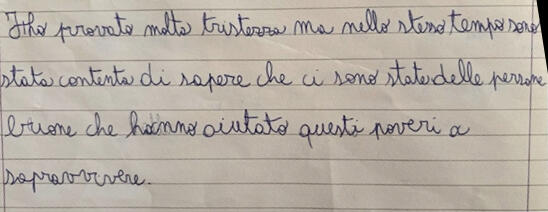 Ho provato molta tristezza ma nello stesso tempo sono
stata contenta di sapere che ci sono state delle persone
buone che hanno aiutato questi poveri a
sopravvivere.